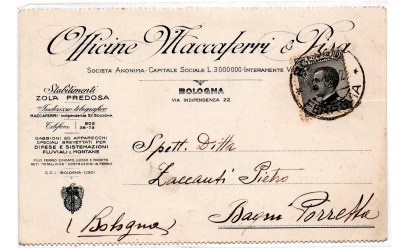 Officine Maccaferri & Pisa
Società Anonima - Capitale Sociale L. 3000000 - Interamente
BOLOGNA
VIA INDIPENDENZA 22
Stabilimenti
ZOLA PREDOSA
Indirizzo telegrafico
MACCAFERRI - Indipendenza 22 - BOLOGNA
Telefoni
GABBIONI ED APPARECCHI
SPECIALI BREVETTATI PER
DIFESE E SISTEMAZIONI
FLUVIALI E MONTANE
C.C.I. - BOLOGNA -
Spett. Ditta
Zaccanti Pietro
Bagni Porretta
(Bologna)